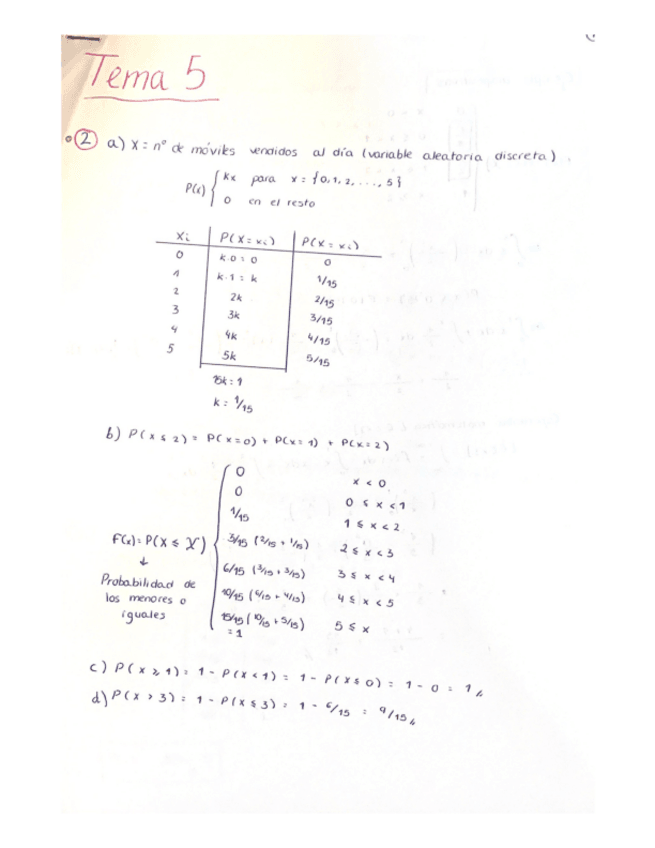 Tema 5
② a) X = nº de móviles vendidos al día (variable aleatoria discreta).
P(x) { kx para x = {0, 1, 2, ..., 5}
0 en el resto
Xi | P(X = xi) | P(X = xi)
0 | k·0 = 0 | 0
1 | k·1 = k | 1/15
2 | 2k | 2/15
3 | 3k | 3/15
4 | 4k | 4/15
5 | 5k | 5/15
15k = 1
k = 1/15
b) P(x ≤ 2) = P(x = 0) + P(x = 1) + P(x = 2)
F(x) = P(X ≤ X) {
0 x < 0
0 0 ≤ x < 1
1/15 1 ≤ x < 2
3/15 (2/15 + 1/15) 2 ≤ x < 3
6/15 (3/15 + 3/15) 3 ≤ x < 4
10/15 (6/15 + 4/15) 4 ≤ x < 5
15/15 (10/15 + 5/15) 5 ≤ x
= 1
↓
Probabilidad de
los menores o
iguales
c) P(x ≥ 1) = 1 - P(x < 1) = 1 - P(x ≤ 0) = 1 - 0 = 1
d) P(x > 3) = 1 - P(x ≤ 3) = 1 - 6/15 = 9/15